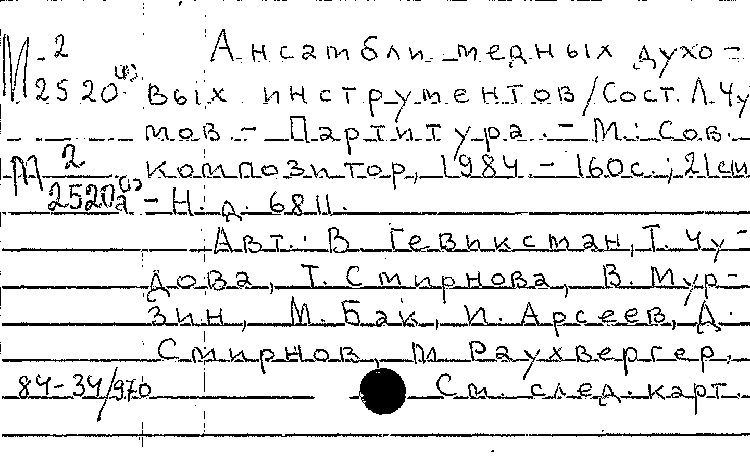 М 2 Ансамбли медных духо-
2520(1) вых инструментов/Сост. Л. Чу
мов. - Партитура. - М.: Сов.
М 2 композитор, 1984. - 160с.; 21см
2520а(1) - Н. д. 6811.
Авт.: В. Гевиксман, Т. Чу-
дова, Т. Смирнова, В. Мур-
зин, М. Бак, И. Арсеев, Д.
Смирнов, М Раухвергер.
84-34/970 См. след. карт.